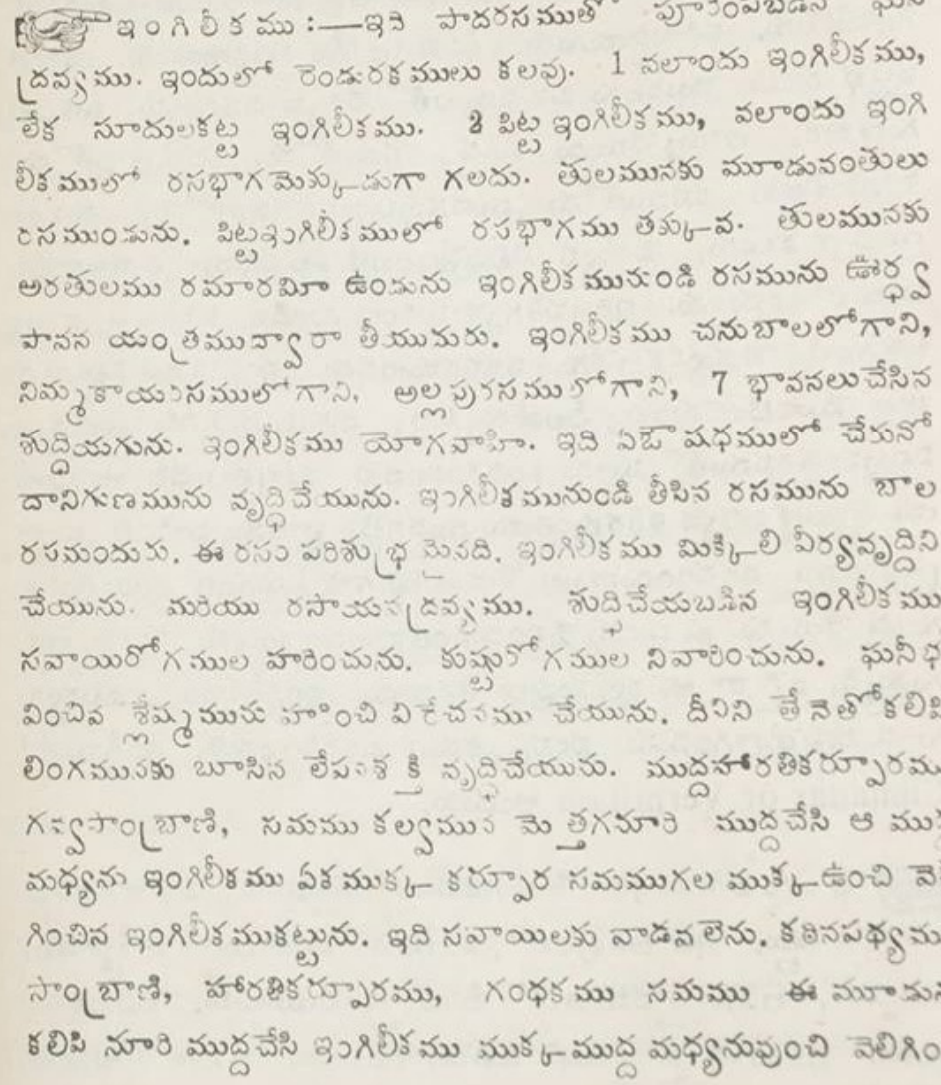 ఇంగిలీకము :—ఇది పాదరసముతో
ద్రవ్యము. ఇందులో రెండురకములు కలవు. 1 వలాందు ఇంగిలీకము,
లేక సూదులకట్ట ఇంగిలీకము. 2 పిట్ట ఇంగిలీకము, వలాందు ఇంగి
లీకములో రసభాగమెక్కుడుగా గలదు. తులమునకు మూడువంతులు
రసముండును. పిట్టఇంగిలీకములో రసభాగము తక్కువ. తులమునకు
అరతులము రమారమీ ఉండును ఇంగిలీకమునుండి రసమును ఊర్ధ్వ
పాతన యంత్రముద్వారా తీయుదురు. ఇంగిలీకము చనుబాలలోగాని,
నిమ్మకాయరసములోగాని, అల్లపురసములోగాని, 7 భావనలుచేసిన
శుద్ధియగును. ఇంగిలీకము యోగవాహి. ఇది ఏఔషధములో చేరునో
దానిగుణమును వృద్ధిచేయును. ఇంగిలీకమునుండి తీసిన రసమును బాల
రసమందురు. ఈ రసం పరిశుభ్రమైనది. ఇంగిలీకము మిక్కిలి వీర్యవృద్దిని
చేయును. మరియు రసాయనద్రవ్యము. శుద్ధిచేయబడిన ఇంగిలీకము
సవాయిరోగముల హరించును. కుష్టురోగముల నివారించును. ఘనీభ
వించిన శ్లేష్మమును హరించి విరేచనము చేయును. దీనిని తేనెతోకలిపి
లింగమునకు బూసిన లేపనశక్తి వృద్ధిచేయును. ముద్దహారతికర్పూరము
గవ్వసాంబ్రాణి, సమము కల్వమున మెత్తగనూరి ముద్దచేసి ఆ ముద్ద
మధ్యను ఇంగిలీకము ఏకముక్క కర్పూర సమముగల ముక్క ఉంచి వె
గించిన ఇంగిలీకముకట్టును. ఇది సవాయిలకు వాడనలెను. కఠినపథ్యము
సాంబ్రాణి, హారతికర్పూరము, గంధకము సమము ఈ మూడును
కలిపి నూరి ముద్దచేసి ఇంగిలీకము ముక్క ముద్ద మధ్యనువుంచి వెలిగిం